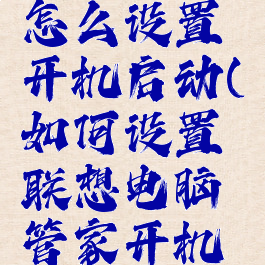 怎么设置
开机启动(
如何设置
联想电脑
管家开机